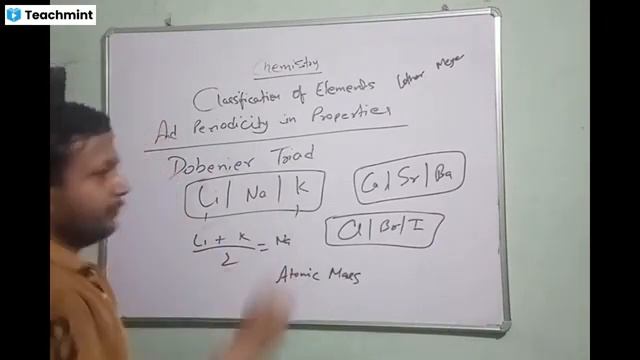 Teachmint
Chemistry
Classification of Elements Lother Meyer
And Periodicity in Properties
Dobenier Triad
Li | Na | K
Ca | Sr | Ba
Cl | Br | I
Li + K
2
= Na
Atomic Mass